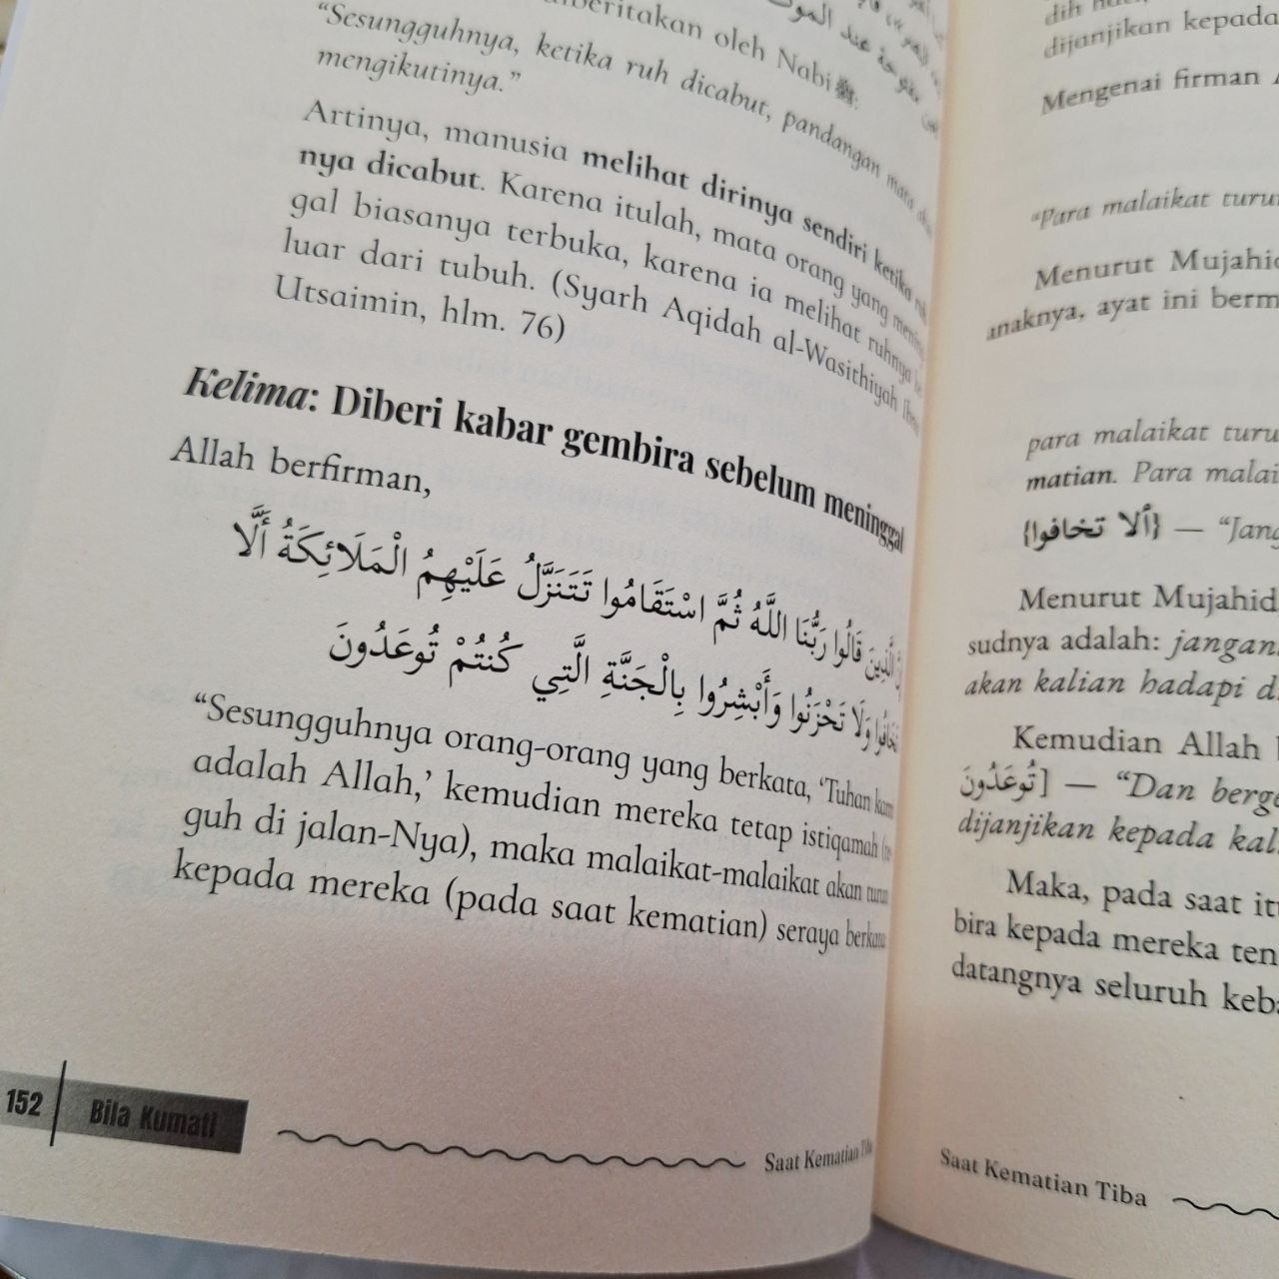 diberitakan oleh Nabi ﷺ:
“Sesungguhnya, ketika ruh dicabut, pandangan mata akan
mengikutinya.”
Artinya, manusia melihat dirinya sendiri ketika ruh
nya dicabut. Karena itulah, mata orang yang
gal biasanya terbuka, karena ia melihat ruhnya
luar dari tubuh. (Syarh Aqidah al-Wasithiyah
Utsaimin, hlm. 76)
Kelima: Diberi kabar gembira sebelum meninggal
Allah berfirman,
الَّذِينَ قَالُوا رَبُّنَا اللَّهُ ثُمَّ اسْتَقَامُوا تَتَنَزَّلُ عَلَيْهِمُ الْمَلَائِكَةُ أَلَّا
تَخَافُوا وَلَا تَحْزَنُوا وَأَبْشِرُوا بِالْجَنَّةِ الَّتِي كُنتُمْ تُوعَدُونَ
“Sesungguhnya orang-orang yang berkata, ‘Tuhan kami
adalah Allah,’ kemudian mereka tetap istiqamah
guh di jalan-Nya), maka malaikat-malaikat akan turun
kepada mereka (pada saat kematian) seraya berkata
152
Bila Kumati
Saat Kematian Tiba
dijanjikan kepada
Mengenai firman
“Para malaikat turu
Menurut Mujahid
anaknya, ayat ini berm
para malaikat turu
matian. Para malai
{ألا تخافوا} — “Jang
Menurut Mujahid
sudnya adalah: jangan
akan kalian hadapi d
Kemudian Allah
تُوعَدُونَ] — “Dan berge
dijanjikan kepada kal
Maka, pada saat itu
bira kepada mereka ten
datangnya seluruh keba
Saat Kematian Tiba